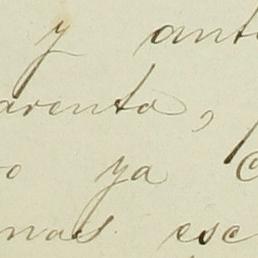 y ant
arento,
o ya
nas esc